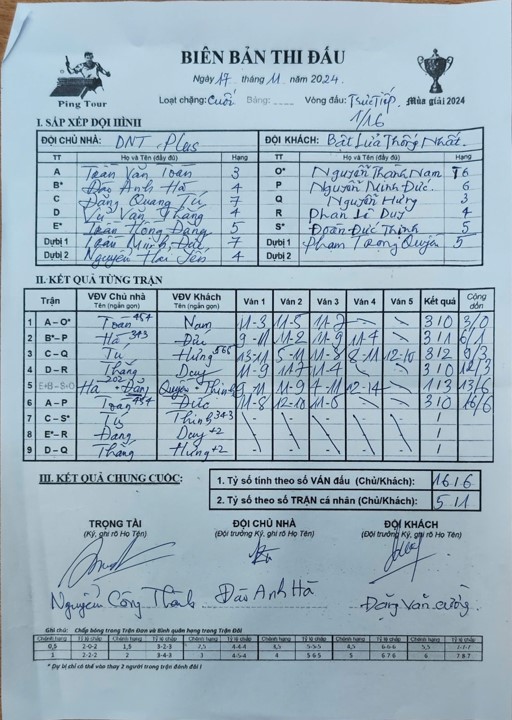 Ping Tour
BIÊN BẢN THI ĐẤU
Ngày 17 tháng 11 năm 2024.
Loại chặng: Cuối Bảng: Vòng đấu: Trực Tiếp 1/16
Mùa giải 2024
I. SẮP XẾP ĐỘI HÌNH
ĐỘI CHỦ NHÀ: DNT Plus ĐỘI KHÁCH: Bật Lửa Thống Nhất.
TT Họ và Tên (đầy đủ) Hạng TT Họ và Tên (đầy đủ) Hạng
A Toàn Văn Toàn 3 O* Nguyễn Thành Nam 6
B* Đào Anh Hà 4 P Nguyễn Minh Đức 6
C Đặng Quang Tú 7 Q Nguyễn Hưng 3
D Vũ Văn Thắng 4 R Phan Lê Duy 4
E* Hồng Đăng 5 S* Đoàn Đức Thịnh 5
Dự bị 1 Minh Đức 7 Dự bị 1 Phạm Trọng Quyên 5
Dự bị 2 Nguyễn Hải Yến 4 Dự bị 2
II. KẾT QUẢ TỪNG TRẬN
Trận VĐV Chủ nhà Tên (ngắn gọn) VĐV Khách Tên (ngắn gọn) Ván 1 Ván 2 Ván 3 Ván 4 Ván 5 Kết quả Cộng dồn
1 A – O* Toàn 454 Nam 11-3 11-5 3/0 3/0
2 B* – P Hà 343 Đức 9-11 11-9 11-4 3/1 6/1
3 C – Q Tú Hưng 565 13-11 5-11 11-8 8-11 12-10 9/3
4 D – R Thắng Duy 11-9 11-7 11-4 3/0 12/3
5 E+B – S+O Hà 202 + Đăng Quyên + Thịnh 11-9 4-11 12-14 1/3 13/6
6 A – P Toàn 454 Đức 11-8 12-10 3/0 16/6
7 C – S* Tú Thịnh 343 /
8 E* – R Đăng Duy +2 /
9 D – Q Thắng Hưng +2 /
III. KẾT QUẢ CHUNG CUỘC:
1. Tỷ số tính theo số VÁN đấu (Chủ/Khách): 16/6
2. Tỷ số theo số TRẬN cá nhân (Chủ/Khách): 5/1
TRỌNG TÀI ĐỘI CHỦ NHÀ ĐỘI KHÁCH
(Ký, ghi rõ Họ Tên) (Đội trưởng Ký, ghi rõ Họ Tên) (Đội trưởng Ký, ghi rõ Họ Tên)
Nguyễn Công Thành Đào Anh Hà Đặng Văn Cường.
Ghi chú: Chấp bóng trong Trận Đơn và Bình quân hạng trong Trận Đôi
Chênh hạng Tỷ lệ chấp Chênh hạng Tỷ lệ chấp Chênh hạng Tỷ lệ chấp Chênh hạng Tỷ lệ chấp Chênh hạng Tỷ lệ chấp Chênh hạng Tỷ lệ chấp
0,5 2-0-2 1,5 3-2-3 2,5 4-4-4 3,5 5-5-5 4,5 6-6-6 5,5 7-7-7
1 2-2-2 2 3-4-3 3 4-5-4 4 5-6-5 5 6-7-6 6 7-8-7
* Dự bị chỉ có thể vào thay 2 người trong trận đánh đôi !